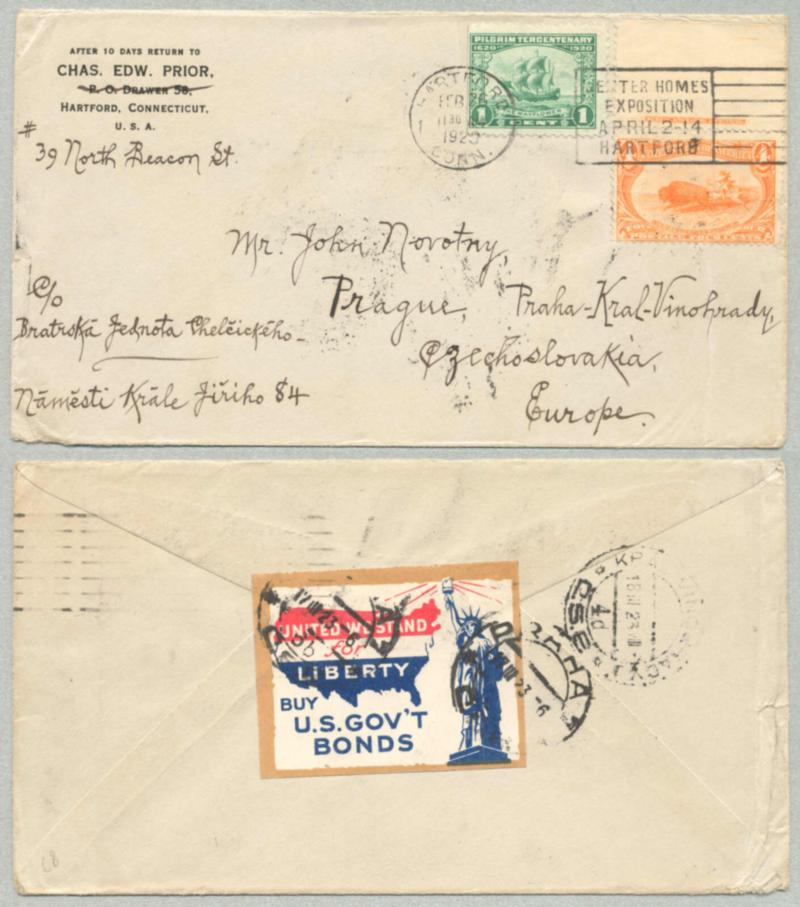 AFTER 10 DAYS RETURN TO
CHAS. EDW. PRIOR,
P. O. DRAWER 58,
HARTFORD, CONNECTICUT,
U. S. A.
# 39 North Beacon St.
PILGRIM TERCENTENARY
1620 1920
THE MAYFLOWER
1 CENT 1
HARTFORD
FEB 26
1130
1923
CONN.
BETTER HOMES
EXPOSITION
APRIL 2-14
HARTFORD
Mr. John Novotny,
Prague, Praha-Kral-Vinohrady,
Czechoslovakia,
Europe.
C/o
Bratrská Jednota Chelčického-
Náměsti Krále Jiřiho 84
UNITED WE STAND
for
LiBERTY
BUY
U.S. GOV'T
BONDS
PRAHA
OSEHA
68